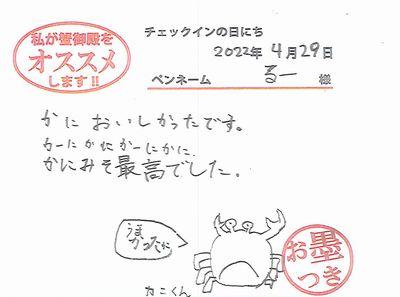 私が蟹御殿を
オススメ
します!!
チェックインの日にち
2022年 4月29日
ペンネーム るー 様
かに おいしかったです。
かーにかにかーにかに.
かにみそ最高でした.
うま
かったに
カニくん
お墨
つき